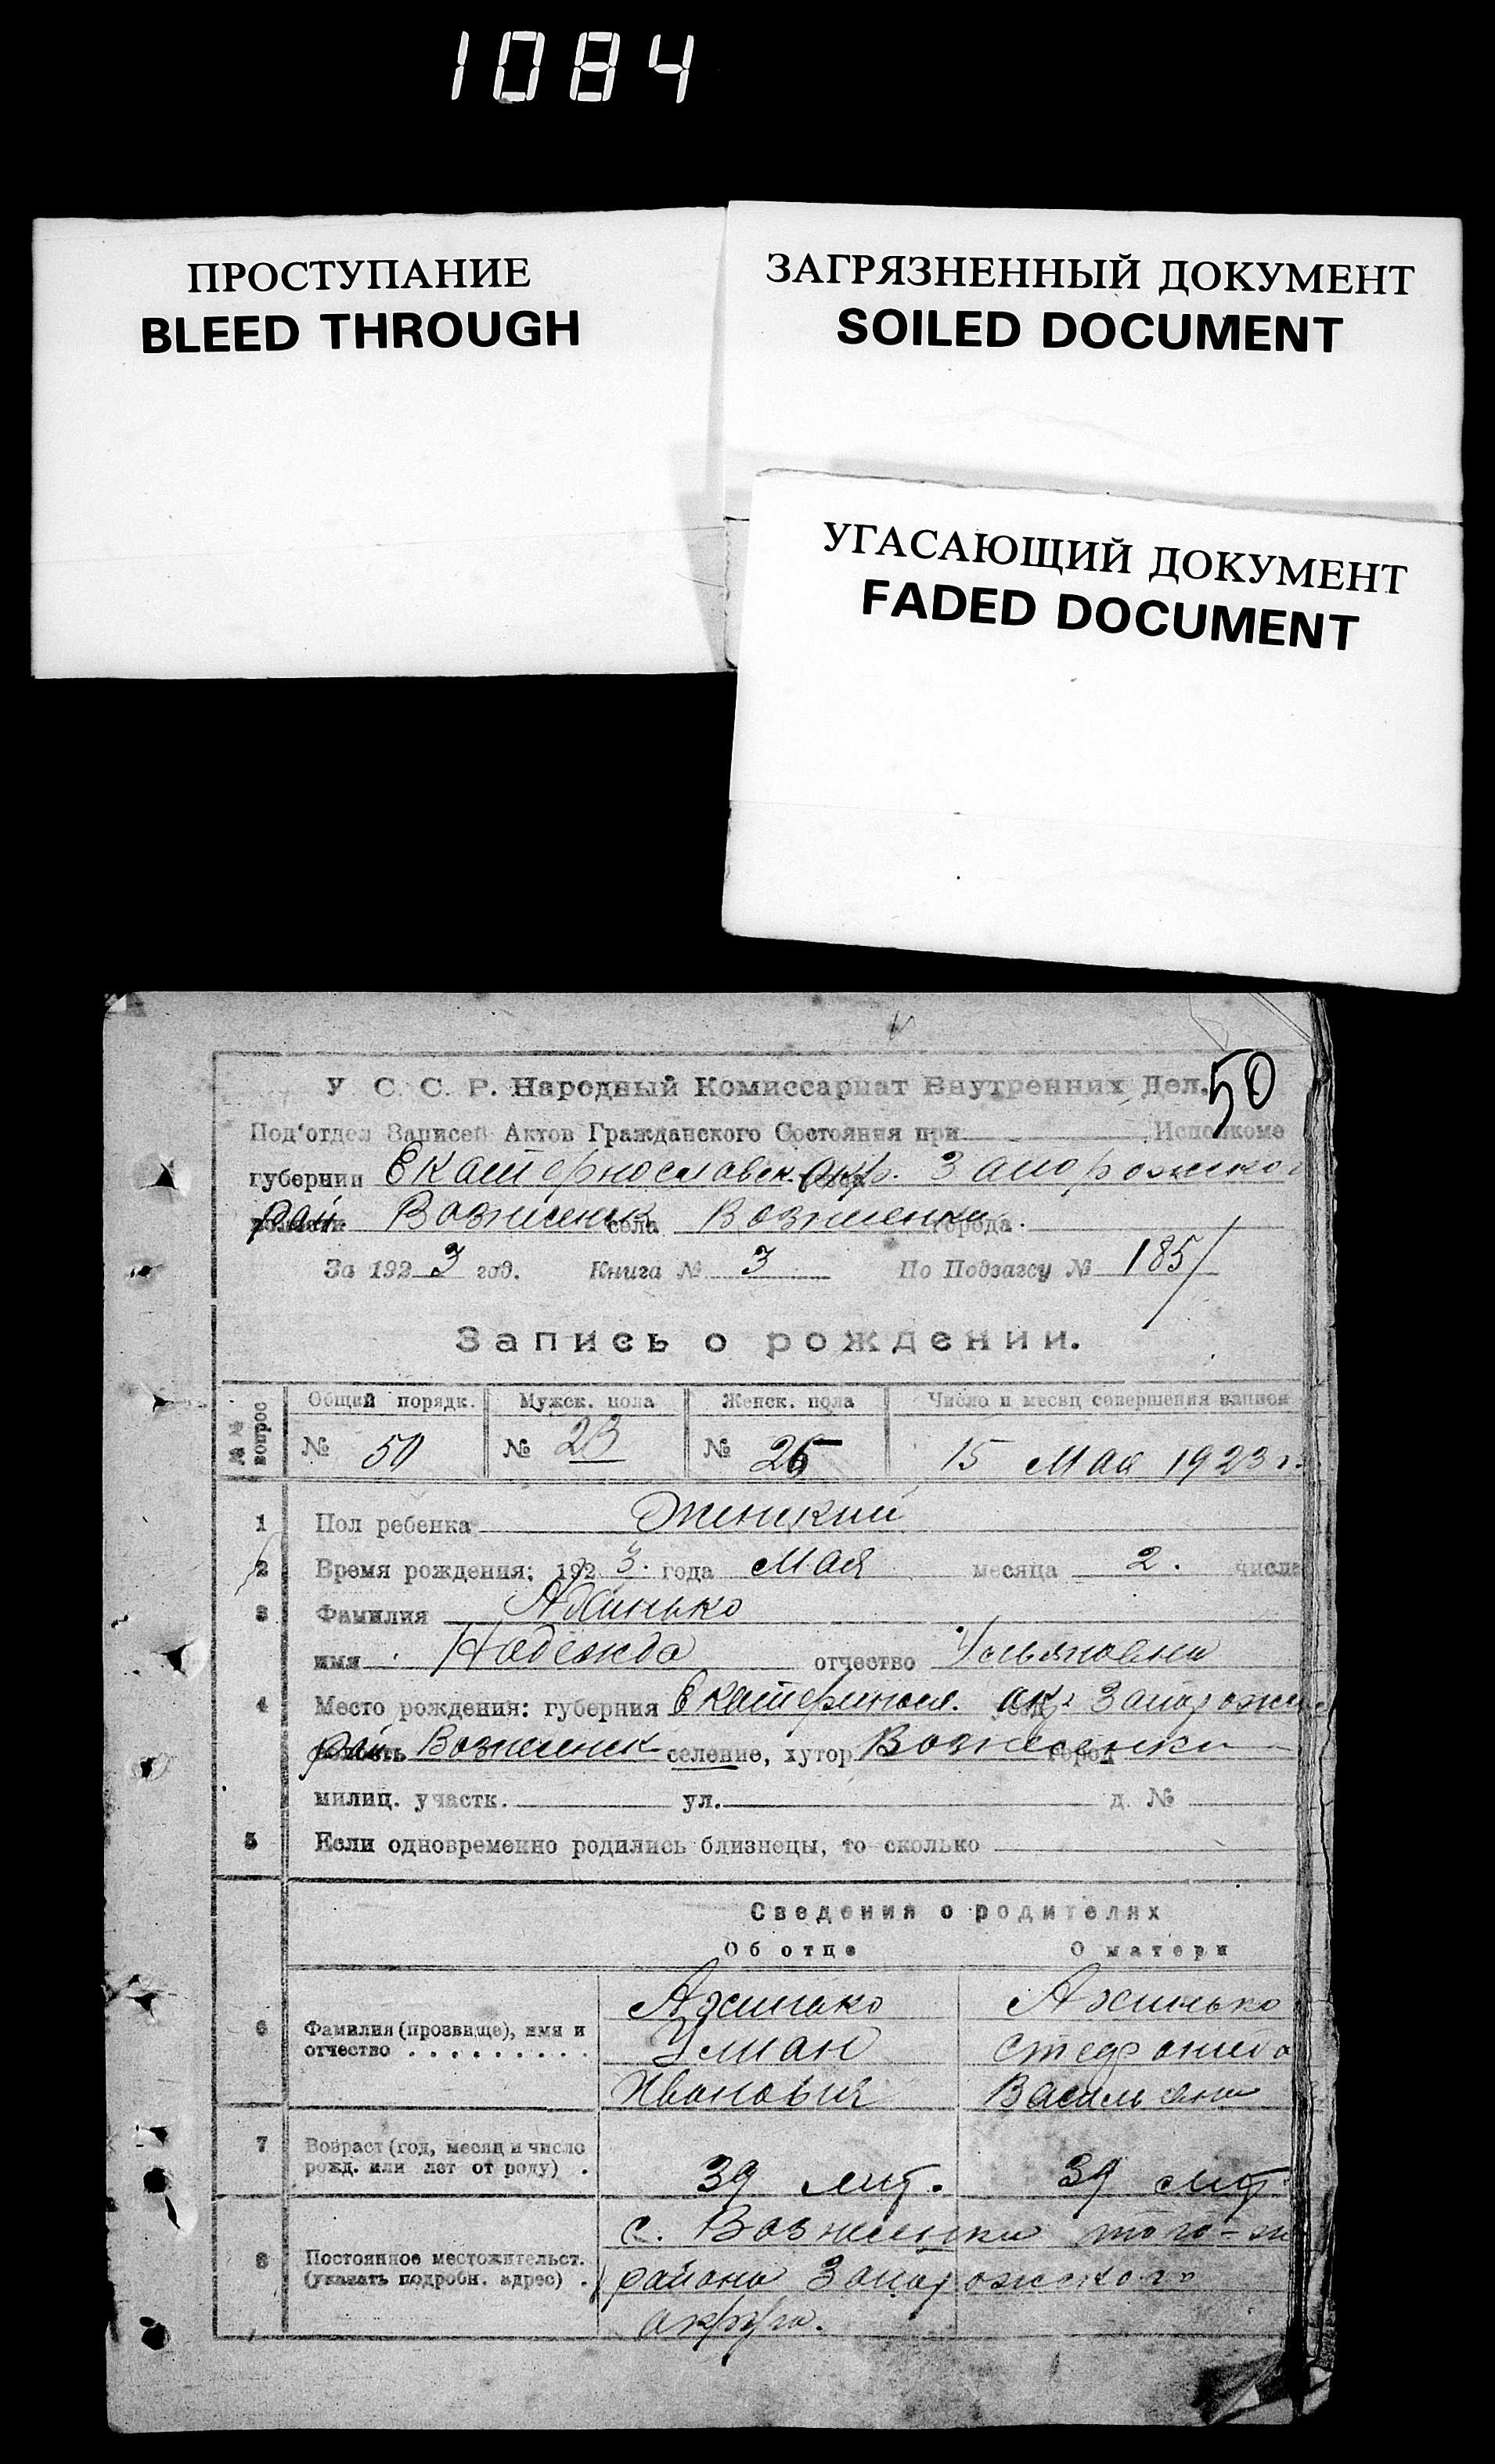 1084
ПРОСТУПАНИЕ
BLEED THROUGH
ЗАГРЯЗНЕННЫЙ ДОКУМЕНТ
SOILED DOCUMENT
УГАСАЮЩИЙ ДОКУМЕНТ
FADED DOCUMENT
50
У С. С. Р. Народный Комиссариат Внутренних Дел.
Под'отдел Записей Актов Гражданского Состояния при Исполкоме
губернии Екатернославск. окр. Запорожско
рай. Вознесенск села Вознесенка города
За 1923 год. Книга № 3 По Подзагсу № 185/
Запись о рождении.
№ № вопрос
Общий порядк. Мужск. пола Женск. пола Число и месяц совершения записи
№ 50 № 23 № 26 15 Мая 1923 г.
1 Пол ребенка Женский
2 Время рождения: 1923. года Мая месяца 2. числа
3 Фамилия
имя Надежда отчество Ульяновна
4 Место рождения: губерния Екатериносл. окр. Запорожс
рай. Вознесенск селение, хутор Вознесенка город
милиц. участк. ул. д. №
5 Если одновременно родились близнецы, то сколько
Сведения о родителях
Об отце О матери
6 Фамилия (прозвище), имя и
отчество . . . . . . . . .
Ажинько Ажинько
Улиан Стефанида
Иванович Васильевна
7 Возраст (год, месяц и число
рожд. или лет от роду) .
39 лет. 39 лет
8 Постоянное местожительст.
(указать подробн. адрес) .
с. Вознесенка того-же
района Запорожского
округа.